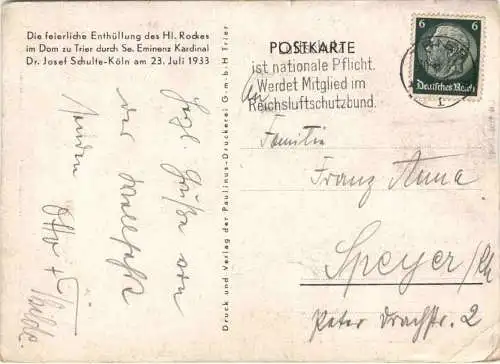 Die feierliche Enthüllung des Hl. Rockes
im Dom zu Trier durch Se. Eminenz Kardinal
Dr. Josef Schulte-Köln am 23. Juli 1933
POSTKARTE
ist nationale Pflicht.
Werdet Mitglied im
Reichsluftschutzbund.
6 6
Deutsches Reich
Druck und Verlag der Paulinus-Druckerei G·m·b·H Trier
Herzl. Grüße von
der Wallfahrt
senden
Otto +
An
Familie
Franz Anna
Speyer/Rh
Peter Drachstr. 2